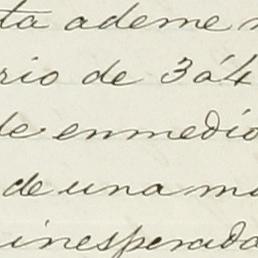 ta ademe
rio de 3 á 4
de enmedio
de una m
inesperada